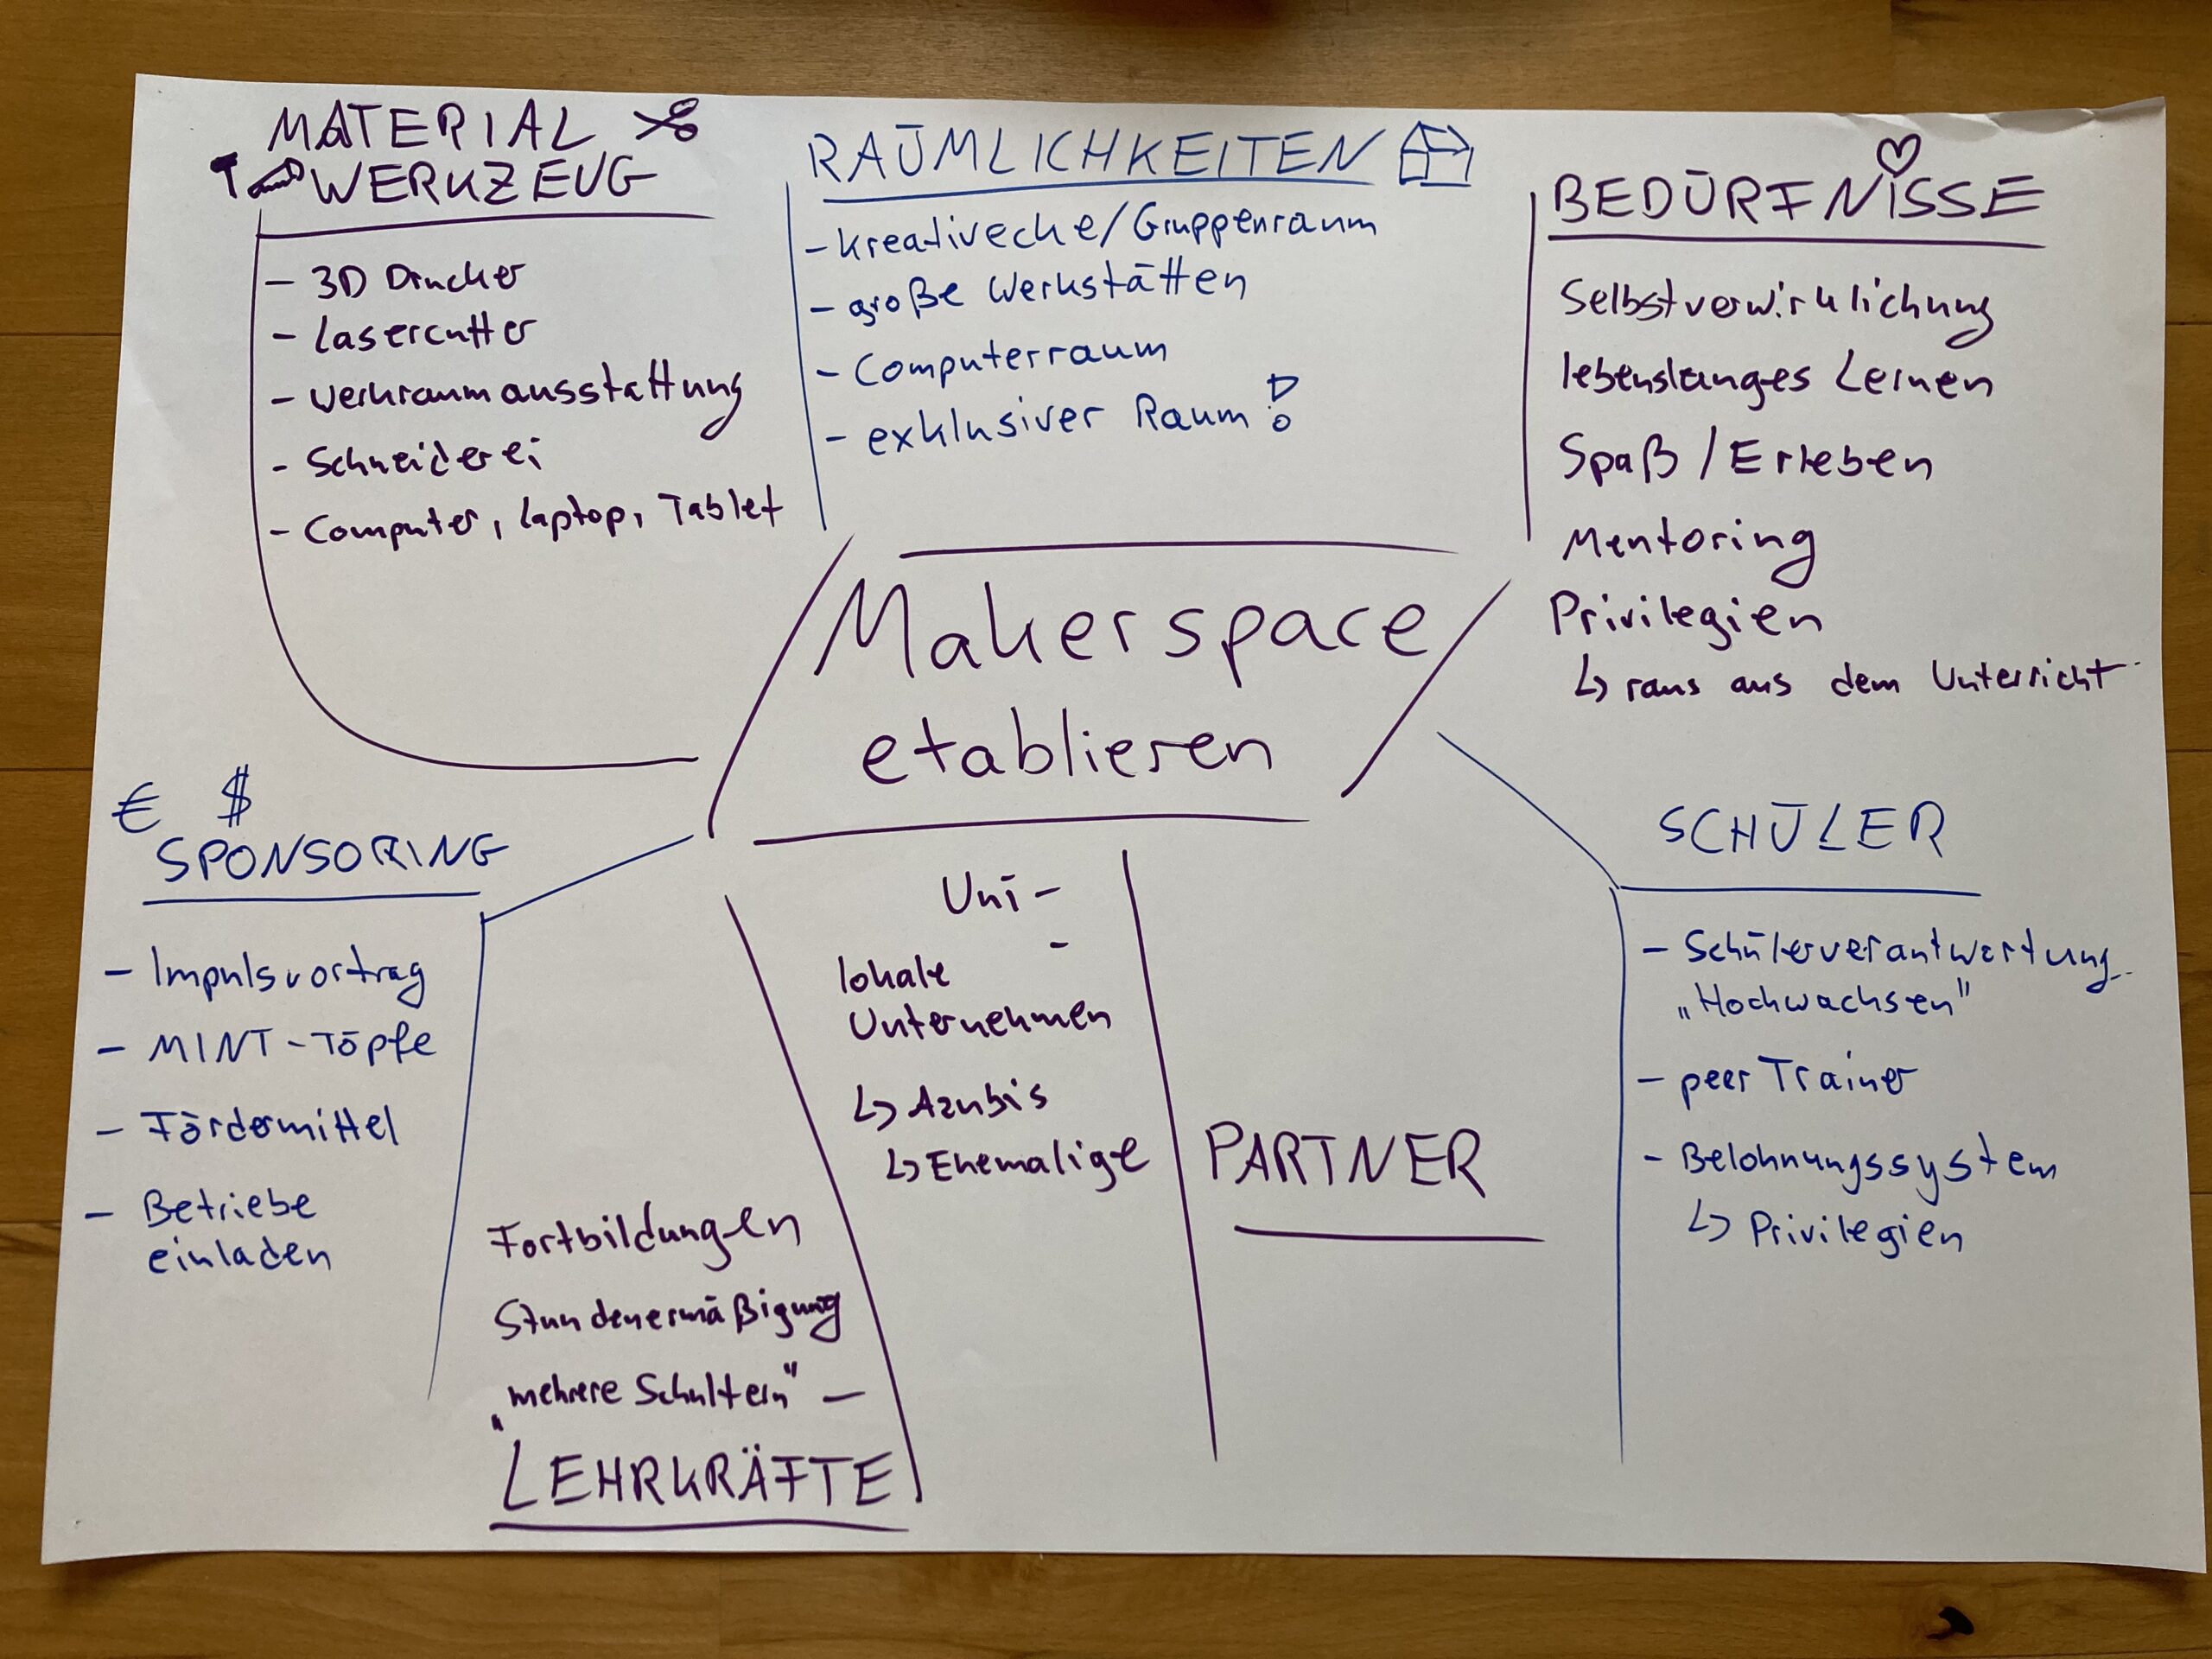 MATERIAL
WERKZEUG
- 3D Drucker
- Lasercutter
- Werkraumausstattung
- Schneiderei
- Computer, Laptop, Tablet
RÄUMLICHKEITEN
- Kreativecke/Gruppenraum
- große Werkstätten
- Computerraum
- exklusiver Raum!
BEDÜRFNISSE
Selbstverwirklichung
lebenslanges Lernen
Spaß / Erleben
Mentoring
Privilegien
↳ raus aus dem Unterricht
Makerspace
etablieren
€ $
SPONSORING
- Impulsvortrag
- MINT-Töpfe
- Fördermittel
- Betriebe
einladen
Fortbildungen
Stundenermäßigung
„mehrere Schultern" -
LEHRKRÄFTE
Uni -
-
lokale
Unternehmen
↳ Azubis
↳ Ehemalige
PARTNER
SCHÜLER
- Schülerverantwortung
„Hochwachsen"
- peer Trainer
- Belohnungssystem
↳ Privilegien